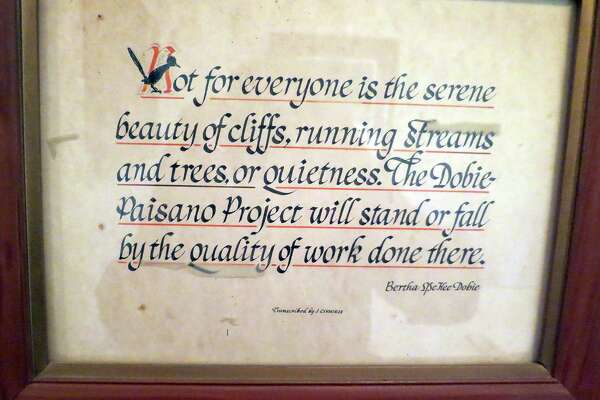 Not for everyone is the serene
beauty of cliffs, running streams
and trees, or quietness. The Dobie-
Paisano Project will stand or fall
by the quality of work done there.
Bertha McKee Dobie
Transcribed by J.